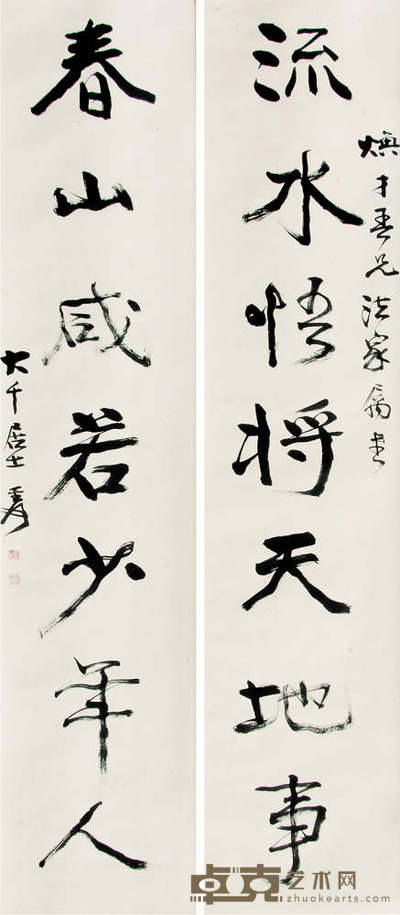 才吾兄法家属书
流水悟将天地事
春山咸若少年人
大千居士爰
卓克艺术网
zhuokearts.com